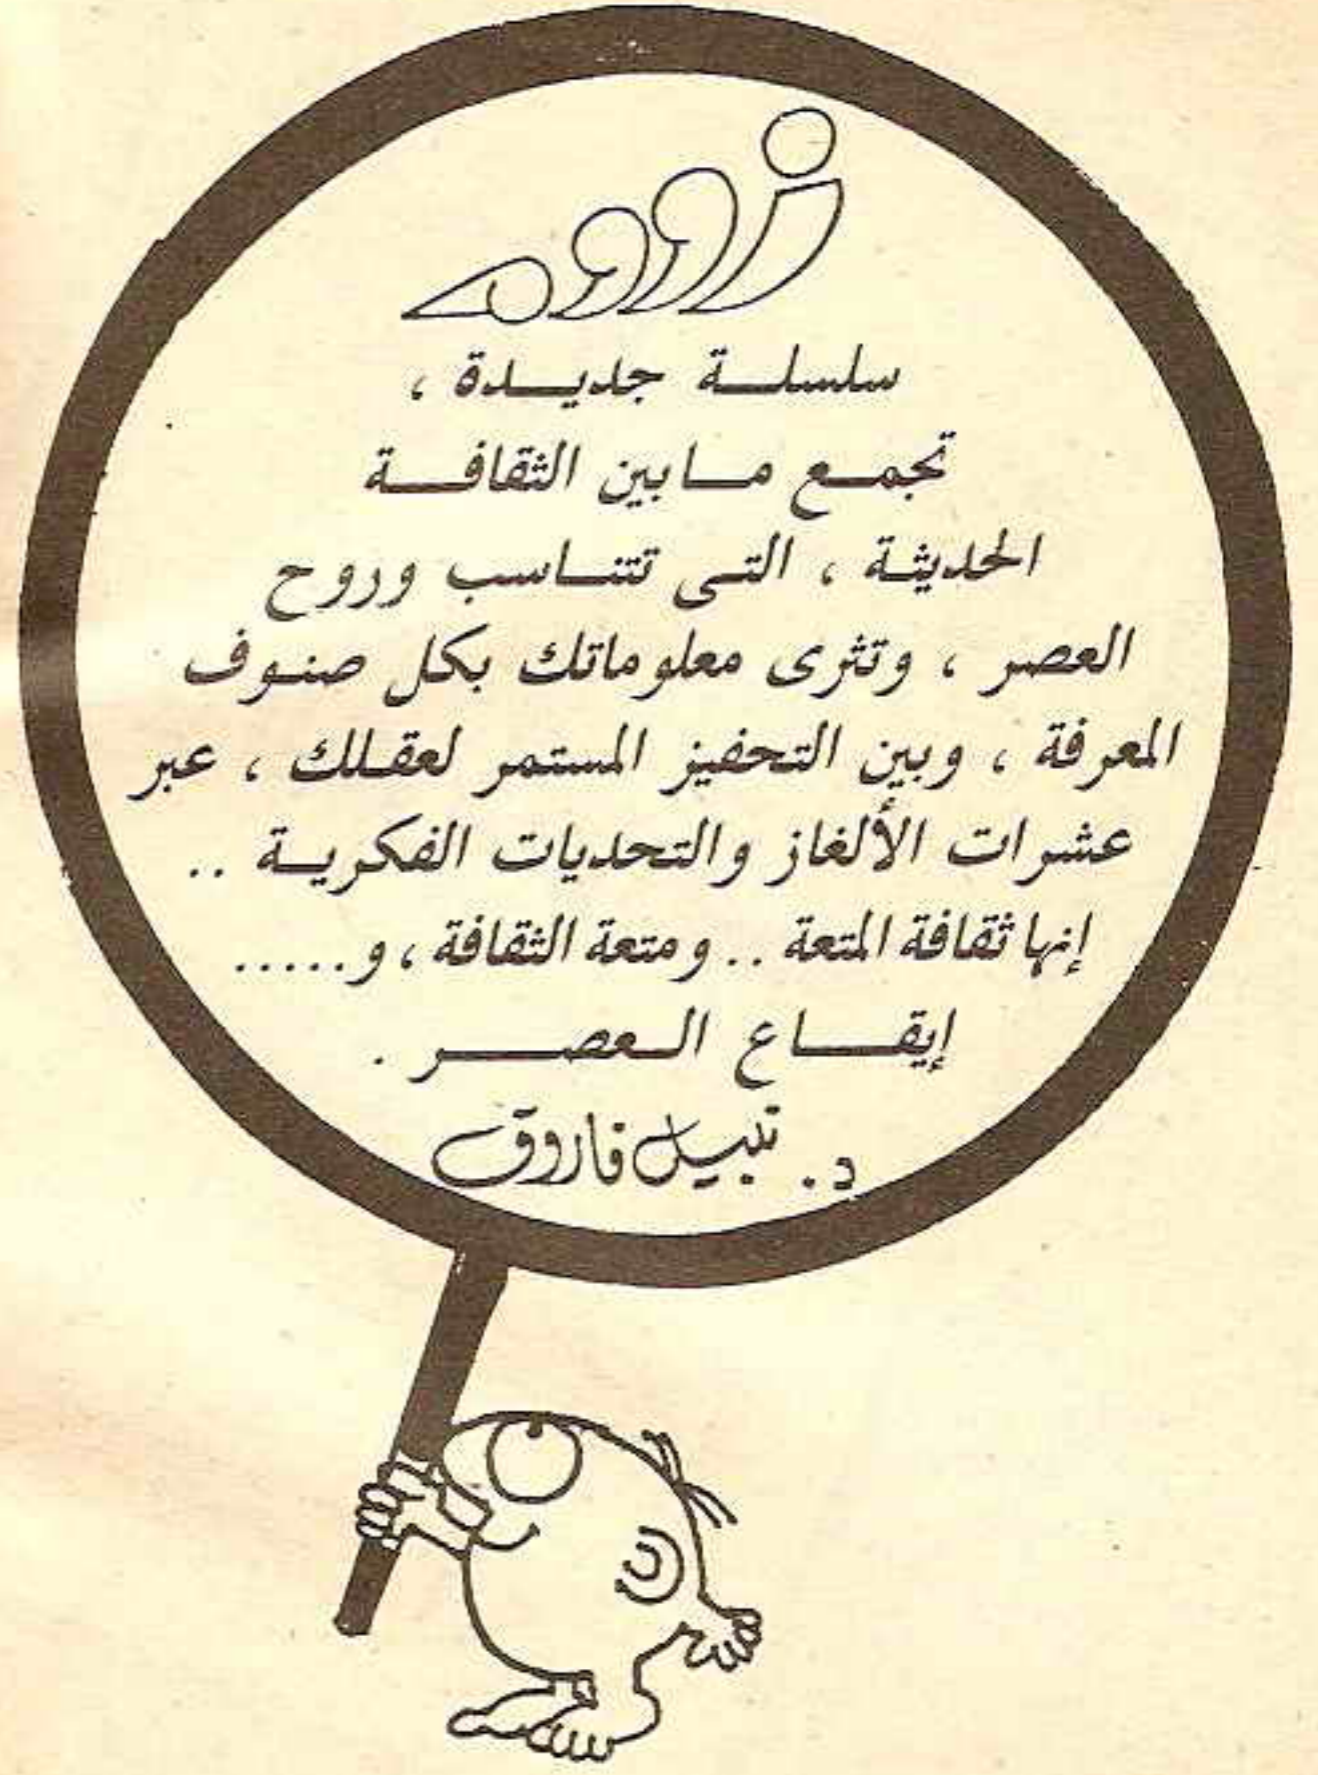 زووم
سلسلة جديدة ،
تجمع ما بين الثقافة
الحديثة ، التى تتناسب وروح
العصر ، وتثرى معلوماتك بكل صنوف
المعرفة ، وبين التحفيز المستمر لعقلك ، عبر
عشرات الألغاز والتحديات الفكرية ..
إنها ثقافة المتعة .. ومتعة الثقافة ، و.....
إيقاع العصر .
د. نبيل فاروق